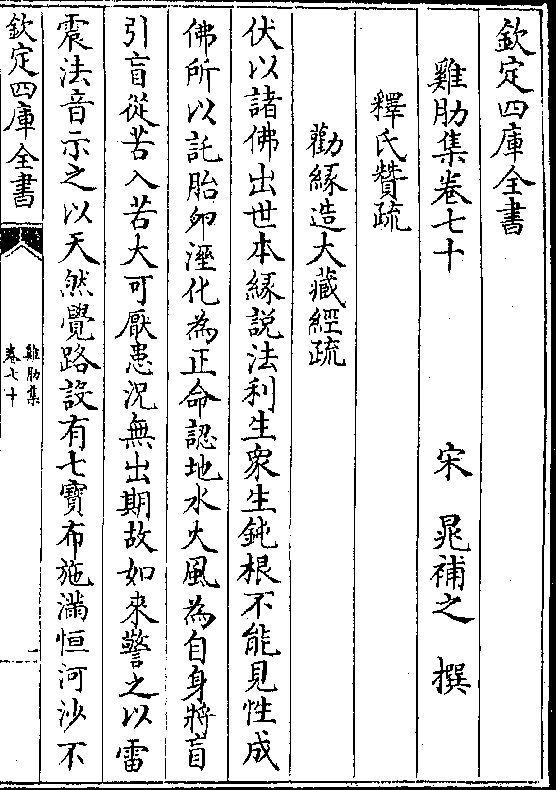 欽定四庫全書
雞肋集卷七十
宋 晁補之 撰
釋氏贊疏
勸緣造大藏經疏
伏以諸佛出世本緣説法利生衆生鈍根不能見性成
佛所以託胎卵溼化為正命認地水火風為自身將盲
引盲從苦入苦大可厭患況無出期故如來警之以雷
震法音示之以天然覺路設有七寶布施滿恒河沙不
欽定四庫全書
雞肋集
卷七十
一